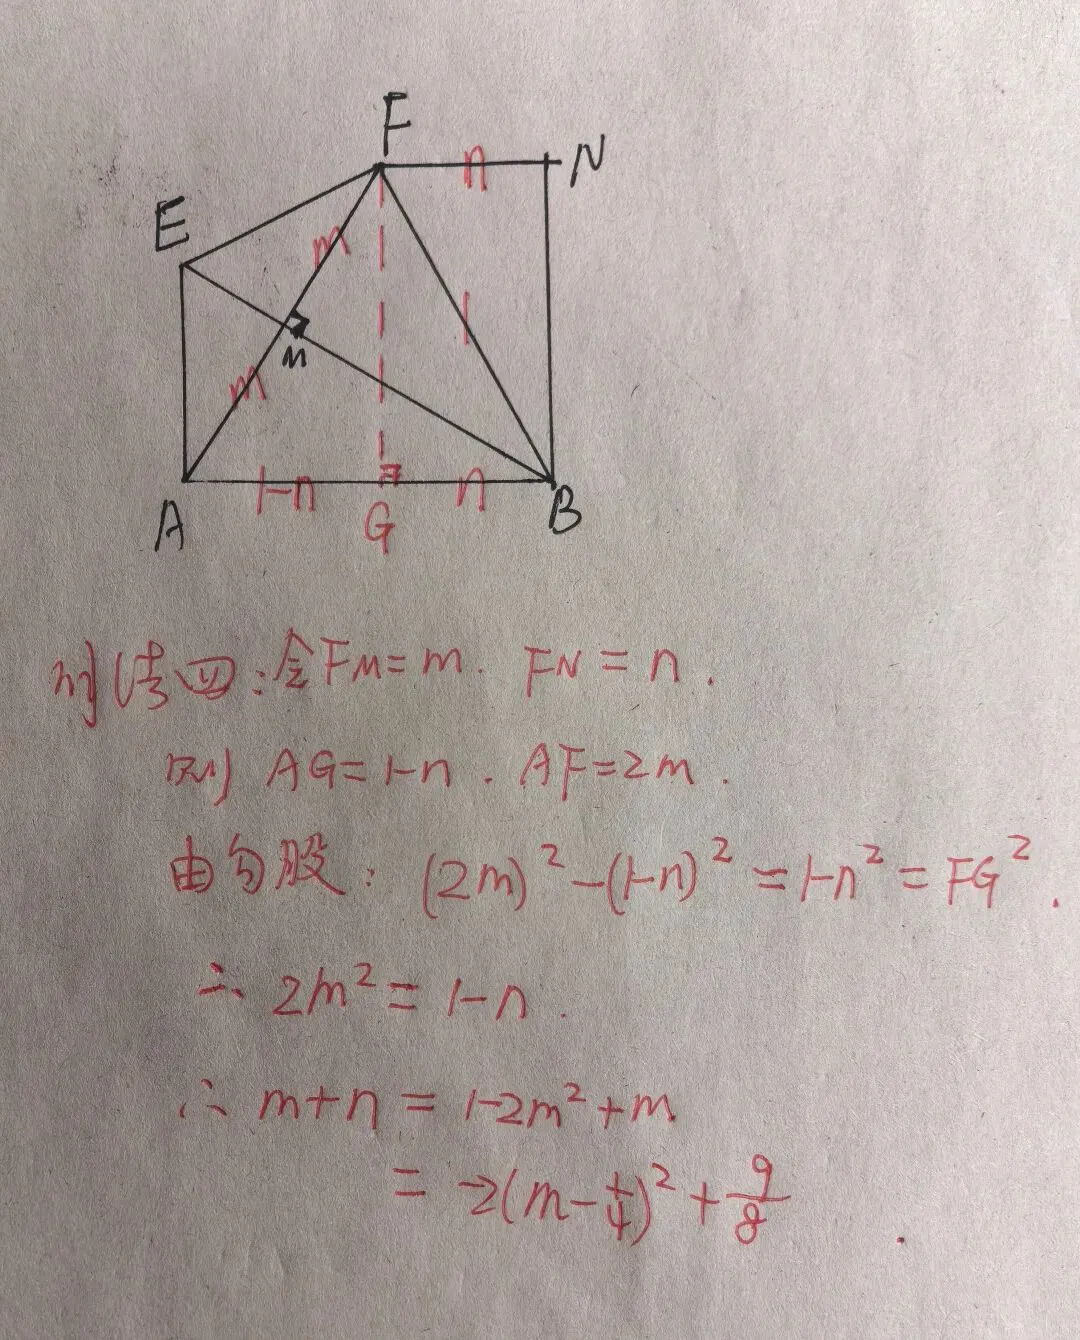 F
n
N
E
m
1
M
m
1-n
n
A
G
B
法四:令FM=m. FN=n.
则 AG=1-n. AF=2m.
由勾股: (2m)²-(1-n)²=1-n²=FG².
∴ 2m²=1-n.
∴ m+n=1-2m²+m
= -2(m-1/4)²+9/8